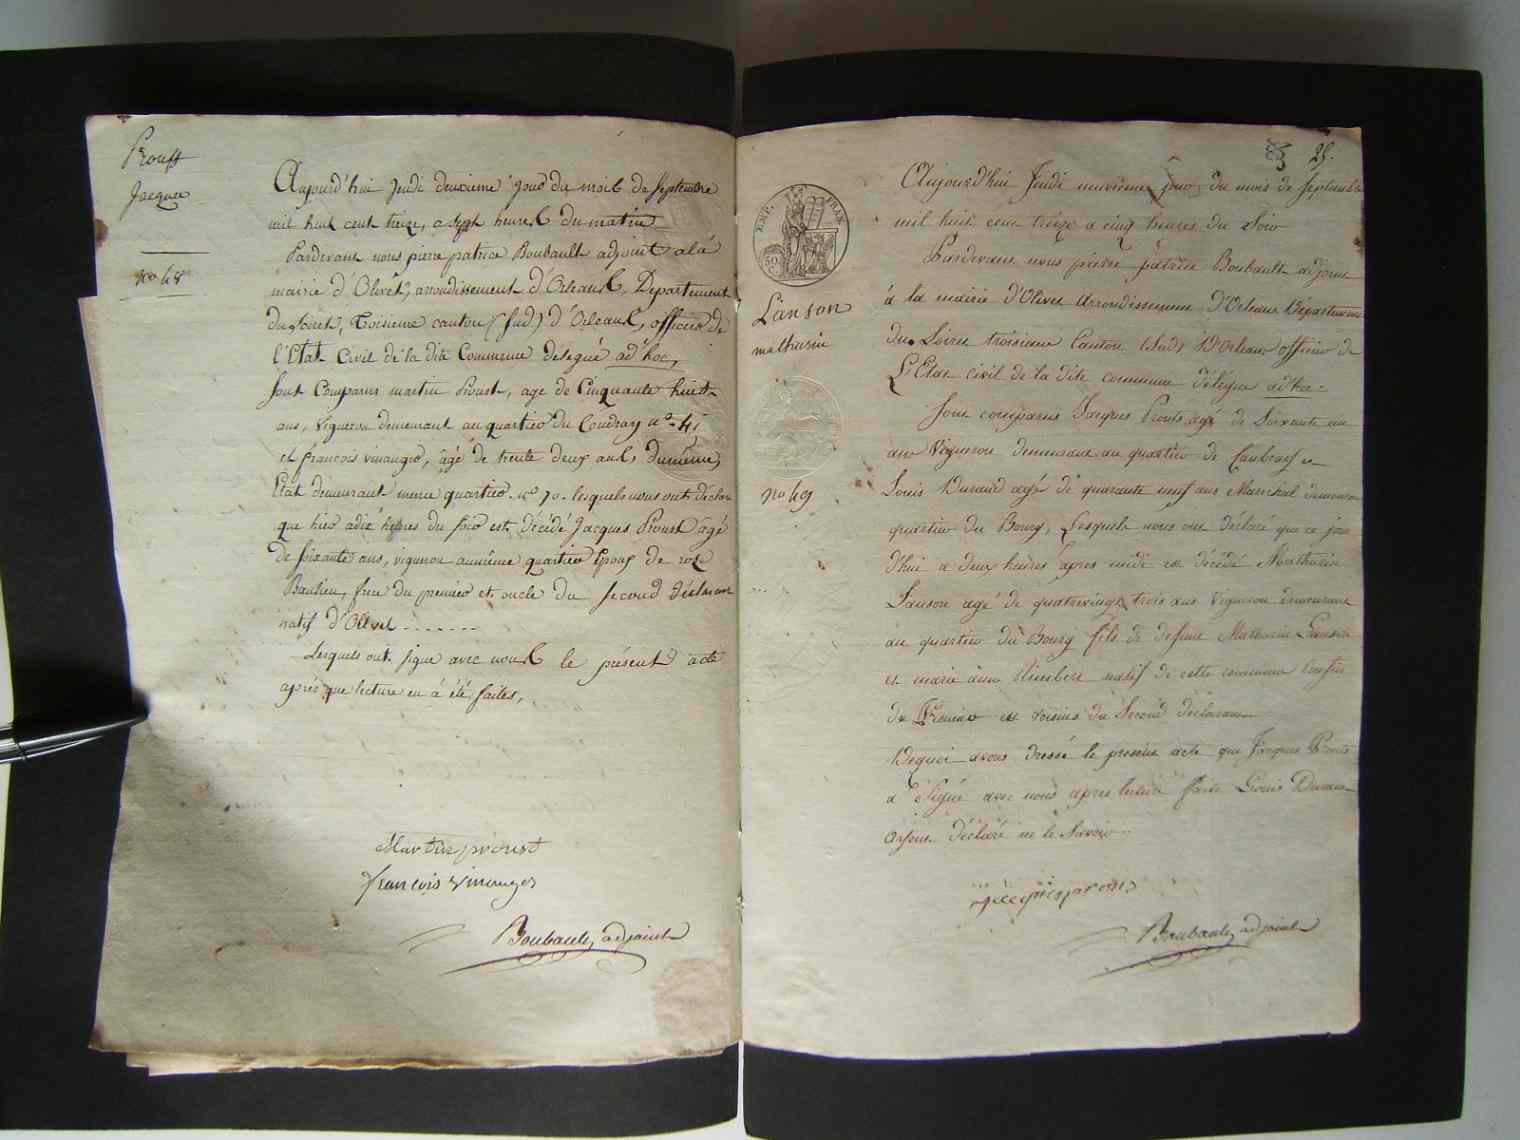 Proust
Jacques
no 48
Aujourd'hui Jeudi deuxieme jour du mois de Septembre
mil huit cent treize, a sept heures du matin
Pardevant nous pierre patrice Boubault adjoint a la
mairie d'Olivet, arrondissement d'Orleans, Departement
du Loiret, Troisieme canton (sud) d'Orleans, officier de
l'Etat Civil de la dite Commune delegué ad'hoc,
sont Comparus martin Proust, age de Cinquante huit
ans, Vigneron demeurant au quartier du Coudray no 41
et françois vinauger, âgé de trente deux ans, du même
Etat demeurant même quartier no 70 lesquels nous ont déclaré
que hier a dix heures du soir est décédé Jacques Proust âgé
de soixante ans, vigneron au même quartier Epoux de
Baulieu, frere du premier et oncle du second déclarant
natif d'Olivet
Lesquels ont signé avec nous le présent acte
après que lecture en a été faites,
Martin proust
francois Vinauger
Boubault, adjoint
25.
EMP. FRAN.
50 C.
Lanson
mathurin
no 49
Aujourd'hui Jeudi neuvieme jour du mois de Septembre
mil huit cent treize a cinq heures du Soir
Pardevant nous pierre patrice Boubault adjoint
à la mairie d'Olivet Arrondissement d'Orleans Departement
du Loiret troisieme Canton (Sud) d'Orleans officier de
L'Etat civil de la dite commune délégué ad'hoc
sont comparus Jacques Prouts agé de Soixante un
ans Vigneron demeurant au quartier de
Louis Durand agé de quarante neuf ans Maréchal demeurant
quartier du Bourg, Lesquels nous ont déclaré que ce jour
d'hui a deux heures après midi est décédé Mathurin
Lanson agé de quatrevingt trois ans Vigneron demeurant
au quartier du Bourg fils de defunt Mathurin Lanson
et marie anne Rimbert natif de cette commune
du Premier et voisins du Second déclarant
Dequoi avons dressé le present acte que Jacques Prouts
a Signé avec nous apres lecture faite Louis Durand
déclaré ne le Savoir
jacques prouts
Boubault, adjoint